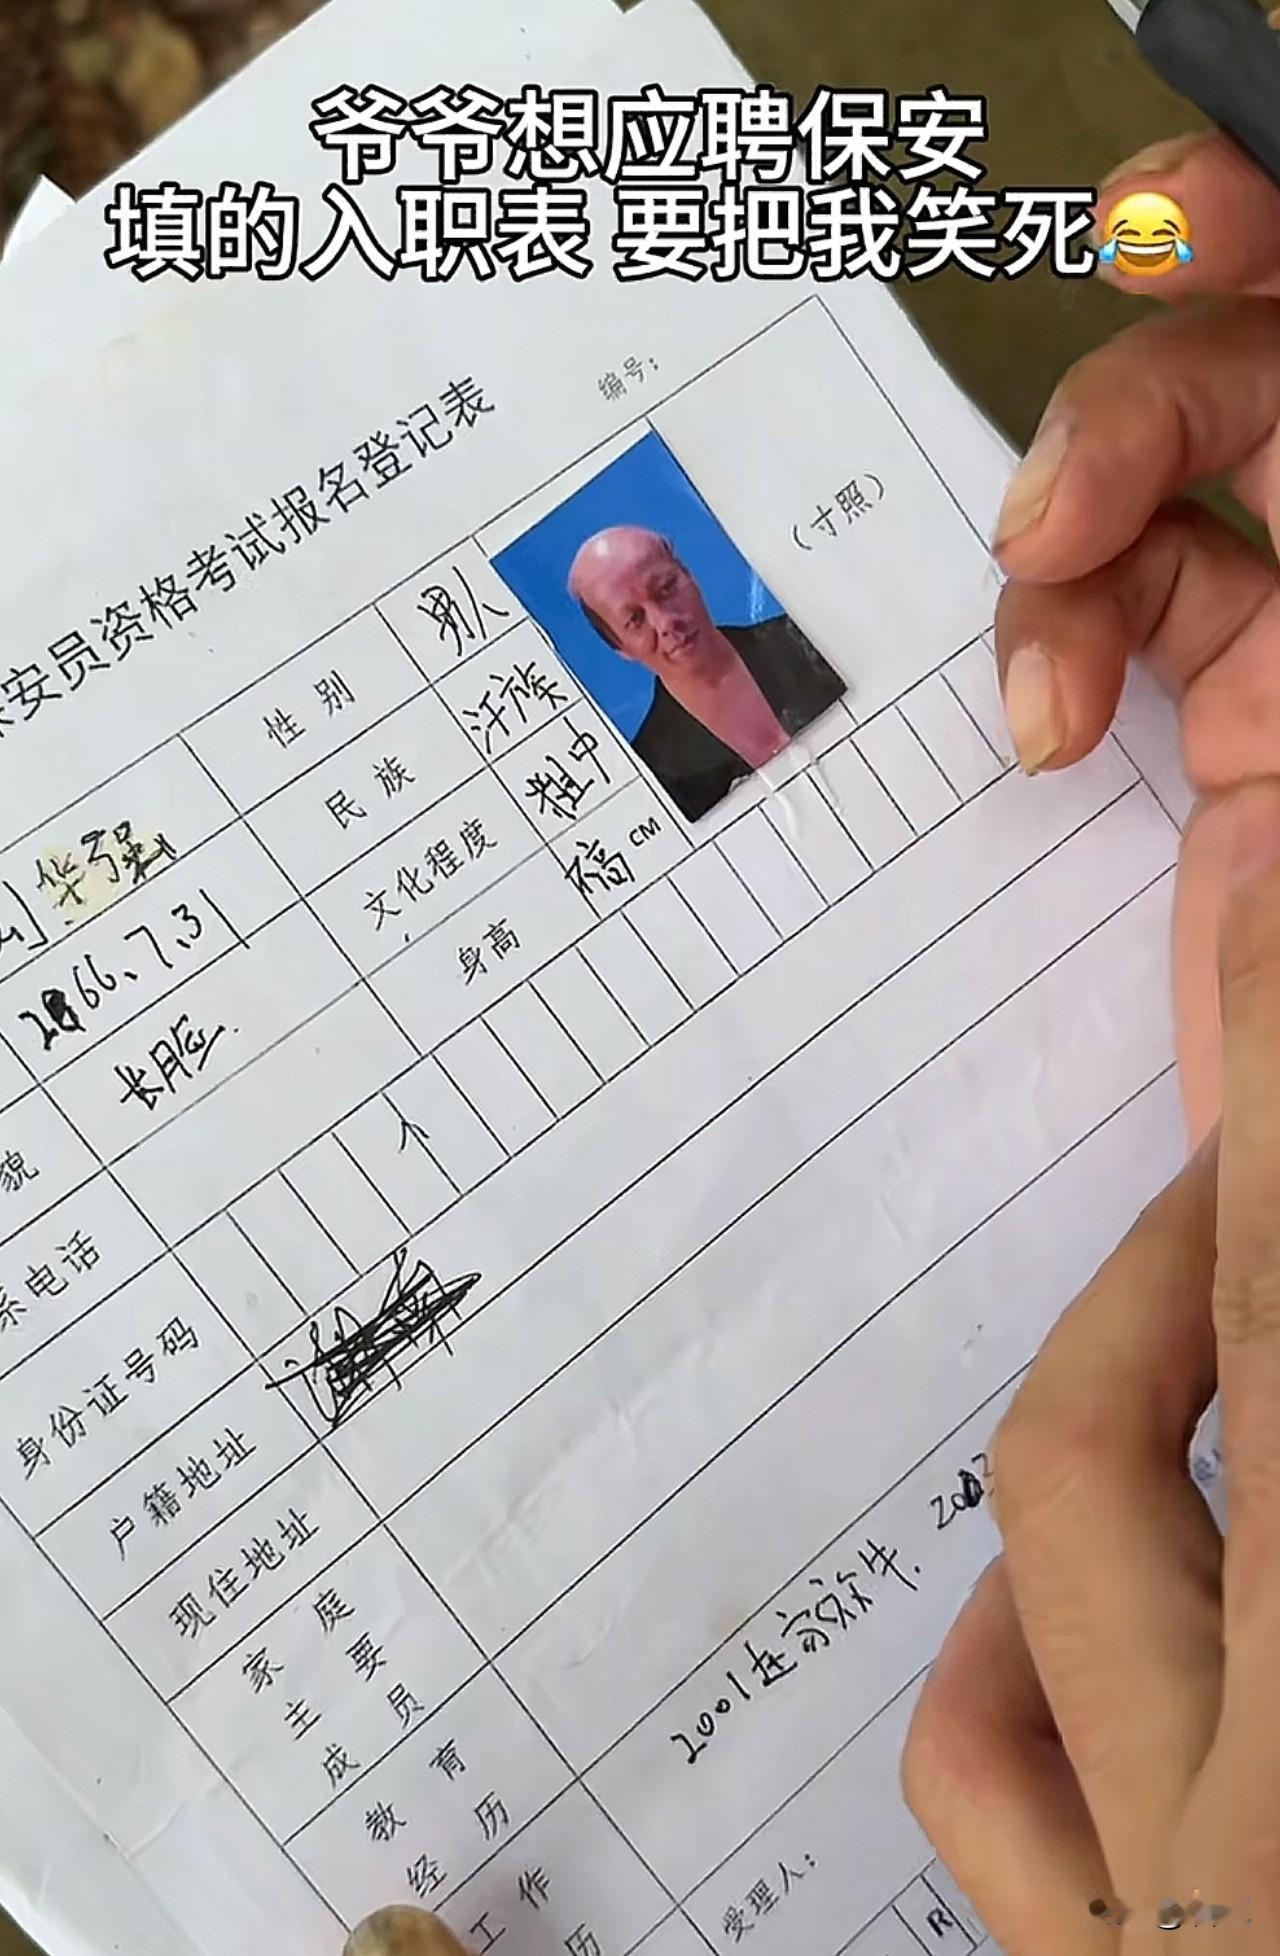 爷爷想应聘保安
填的入职表 要把我笑死😂
编号：
安员资格考试报名登记表
（寸照）
性别 男人
民族 汗族
华强
文化程度 粗中
66、7、31
身高 不高 CM
长脸.
貌
系电话
个
身份证号码
户籍地址
现住地址
家庭
主要
成员
教育
经历
2001 在家放牛.
工作
历
受理人：